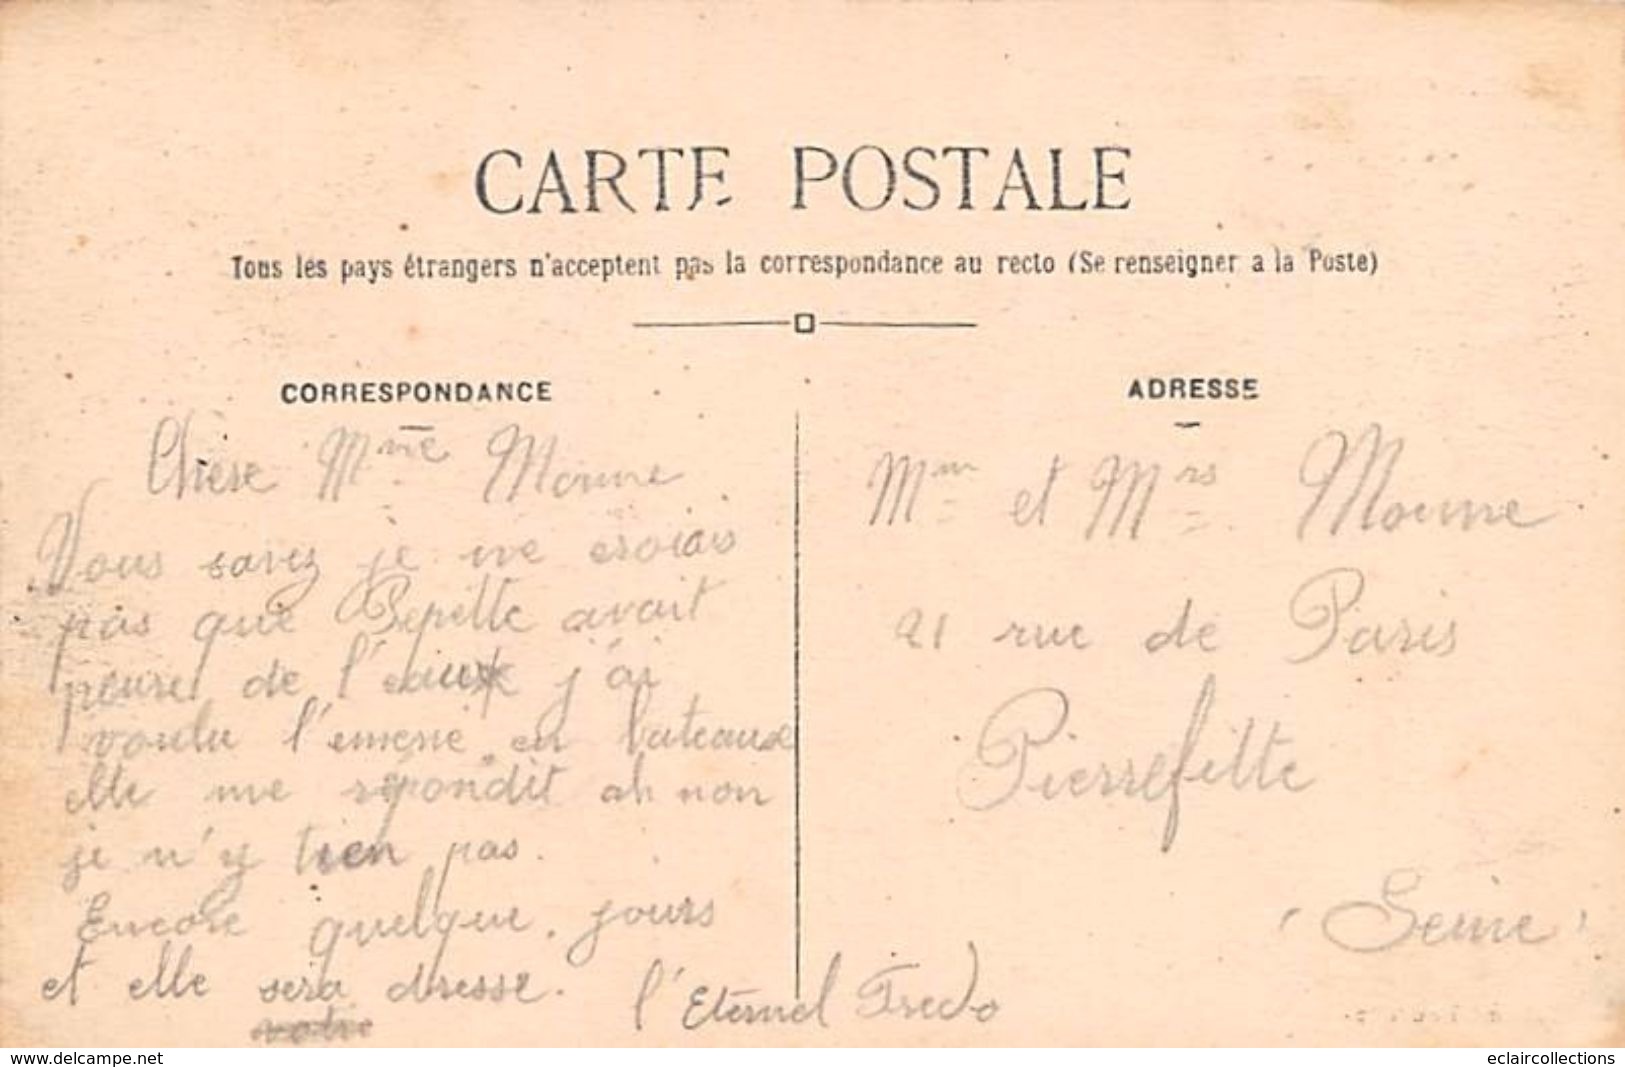 CARTE POSTALE
Tous les pays étrangers n'acceptent pas la correspondance au recto (Se renseigner a la Poste)
CORRESPONDANCE
Chère Mme Morine
Vous savez je ne croiais
pas que Pepette avait
peure de l'eaux j'ai
voulu l'emene en bateaux
elle me répondit ah non
je n'y tien pas.
Encore quelque jours
et elle sera dresse.
l'Eternel Fredo
ADRESSE
Mm et Mrs Morine
21 rue de Paris
Pierrefitte
(Seine)
www.delcampe.com
eclaircollections